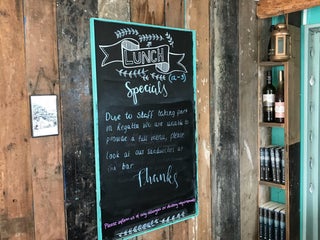 LUNCH
(12-3)
Specials
Due to staff taking part
in Regatta we are unable to
provide a full menu, please
look at our sandwiches at
the bar
Thanks
Please inform us of any allergies or dietary requirements